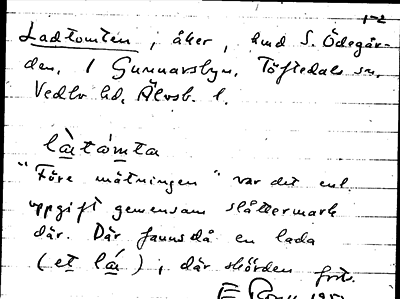 1-2
Ladtomten, åker, hmd S. Ödegår-
den, i Gunnarsbyn. Töftedals sn,
Vedbo hd, Älvsb. l.
làtómta
"Före mätningen" var det enl
uppgift gemensam slåttermark
där. Där fanns då en lada
(et lá), där skörden förv.